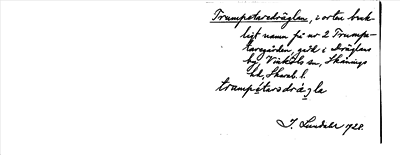 Trumpetaredräglan, i orten bruk-
ligt namn på nr 2 Trumpe-
taregården, gård i Dräglans
by, Vinköls sn, Skånings
hd, Skarab. l.
trumpetarsdrägla
J. Lundahl 1928.